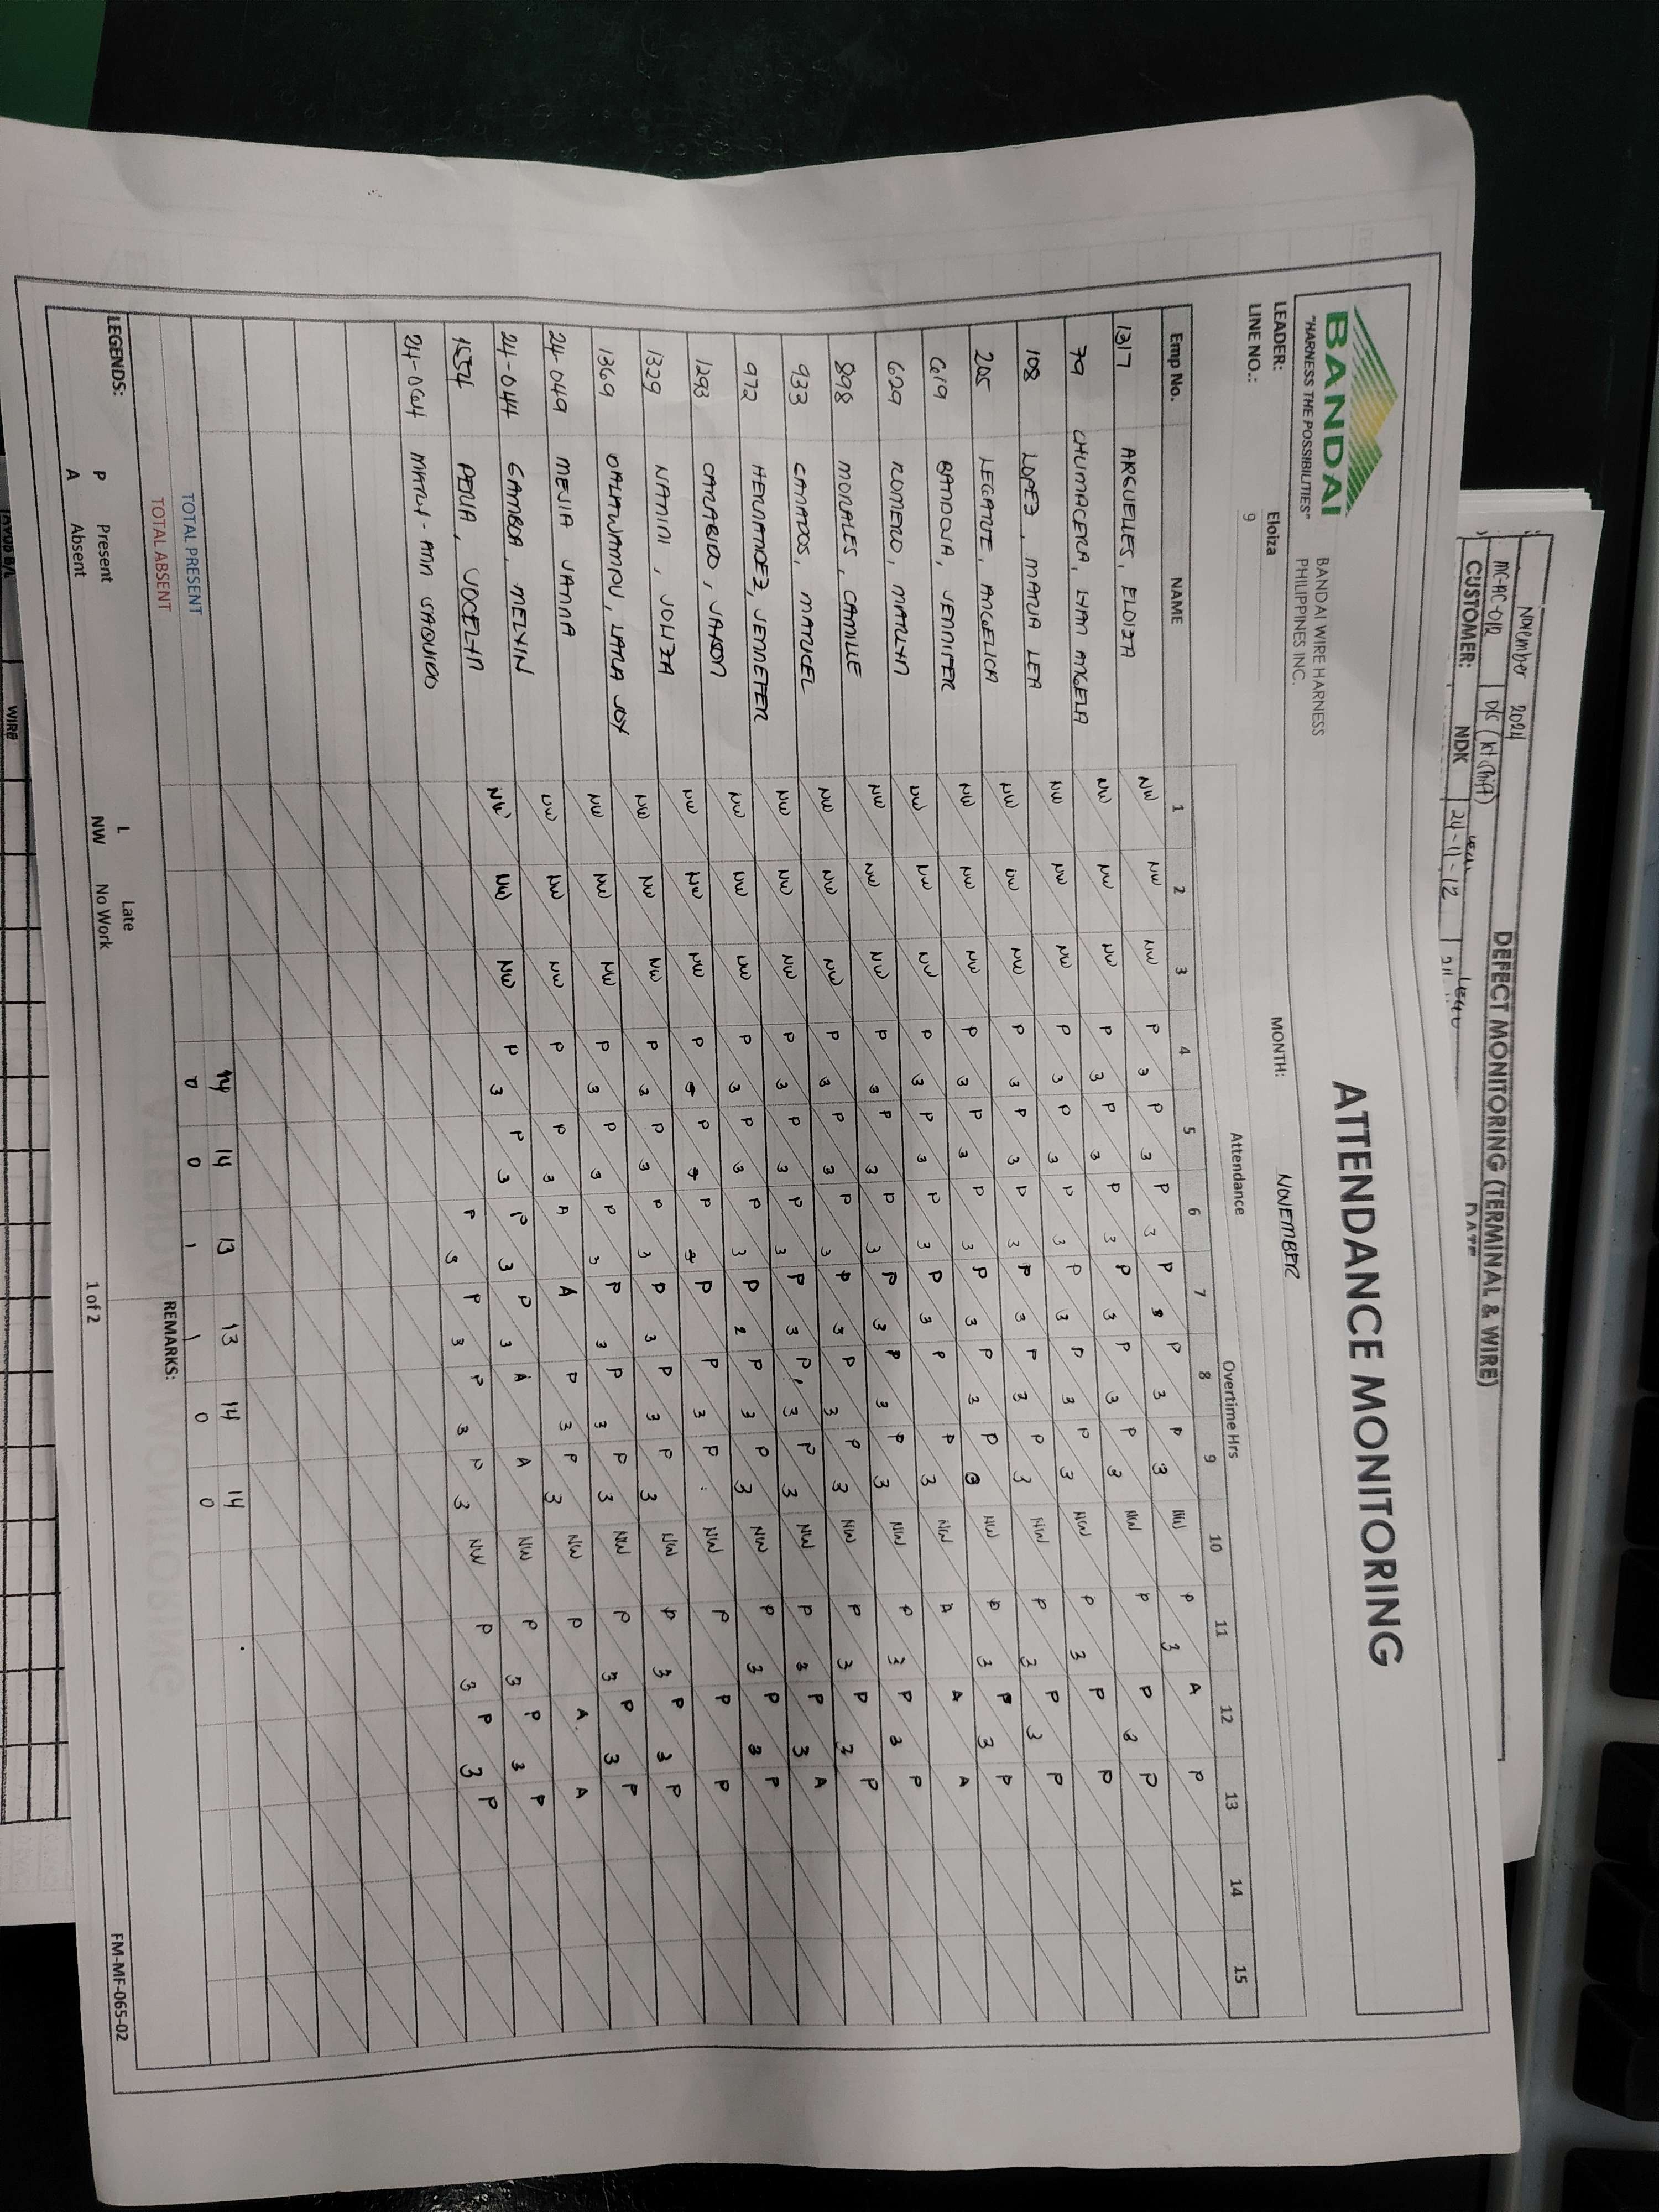 November 2024
DEFECT MONITORING (TERMINAL & WIRE)
CUSTOMER: NDK 24-11-12
DATE
BANDAI
"HARNESS THE POSSIBILITIES"
BANDAI WIRE HARNESS
PHILIPPINES INC.
ATTENDANCE MONITORING
LEADER: Eloiza MONTH: NOVEMBER
LINE NO.: 9
Attendance Overtime Hrs
Emp No. NAME 1 2 3 4 5 6 7 8 9 10 11 12 13 14 15
1317 ARGUELLES, ELOIZA NW NW NW P 3 P 3 P 3 P 3 P 3 P 3 NW P 3 A P
79 CHUMACERA, LYAN ANGELA NW NW NW P 3 P 3 P 3 P 3 P 3 P 3 NW P P 3 P
108 LOPEZ, MARIA LEA NW NW NW P 3 P 3 P 3 P 3 P 3 P 3 NW P 3 P P
205 LEGARTE, ANGELICA NW NW NW P 3 P 3 P 3 P 3 P 3 P 3 NW P 3 P 3 P
619 BANDOJA, JENNIFER NW NW NW P 3 P 3 P 3 P 3 P 3 P NW P 3 P 3 P
629 ROMERO, MARLYN NW NW NW P 3 P 3 P 3 P 3 P P 3 NW A A A
898 MORALES, CAMILLE NW NW NW P 3 P 3 P 3 P 3 P 3 P 3 NW P 3 P 3 P
933 CANATOS, MARICEL NW NW NW P 3 P 3 P 3 P 3 P 3 P 3 NW P 3 P 3 P
972 HERNANDEZ, JENNEFER NW NW NW P 3 P 3 P 3 P 3 P 3 P 3 NW P 3 P 3 A
1293 CARABIDO, JAYSON NW NW NW P 3 P 3 P 3 P 2 P 3 P 3 NW P 3 P 3 P
1329 NARINI, JOLIZA NW NW NW P P P P P 3 P NW P P P
1369 DALAWAMPU, LARA JOY NW NW NW P 3 P 3 P 3 P 3 P 3 P 3 NW P 3 P 3 P
24-049 MEJIA JANNA NW NW NW P 3 P 3 P 3 P 3 P 3 P 3 NW P 3 P 3 P
24-044 GAMBOA, MELYIN NW NW NW P P 3 A A P 3 P 3 NW P A A
1554 PERIA, JOCELYN NW NW NW P 3 P 3 P 3 P 3 A A NW P 3 P 3 P
24-064 MARY-ANN SAQUIDO P 3 P 3 P 3 P 3 NW P 3 P 3 P
TOTAL PRESENT 14 14 13 13 14 14
TOTAL ABSENT 0 0 1 1 0 0
REMARKS:
LEGENDS: P Present L Late
A Absent NW No Work
1 of 2
FM-MF-065-02
WIRE